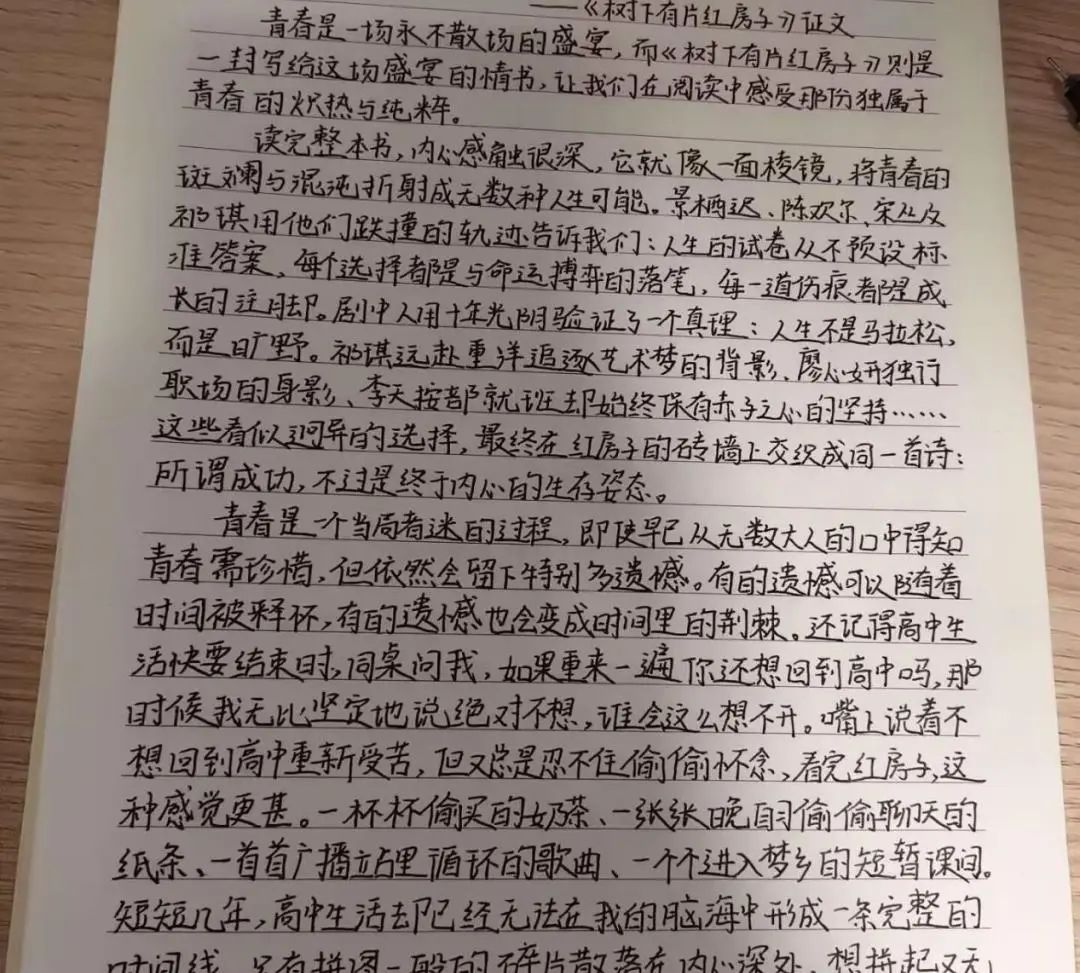 ——《树下有片红房子》征文
青春是一场永不散场的盛宴，而《树下有片红房子》则是
一封写给这场盛宴的情书，让我们在阅读中感受那份独属于
青春的炽热与纯粹。
读完整本书，内心感触很深，它就像一面棱镜，将青春的
斑斓与混沌折射成无数种人生可能。景栖迟、陈欢尔、宋丛及
祁琪用他们跌撞的轨迹告诉我们：人生的试卷从不预设标
准答案，每个选择都是与命运搏弈的落笔，每一道伤痕都是成
长的注脚。剧中人用十年光阴验证了一个真理：人生不是马拉松，
而是旷野。祁琪远赴重洋追逐艺术梦的背影、廖心妍独行
职场的身影、李天按部就班却始终保有赤子之心的坚持……
这些看似迥异的选择，最终在红房子的砖墙上交织成同一首诗：
所谓成功，不过是终于内心的生存姿态。
青春是一个当局者迷的过程，即使早已从无数大人的口中得知
青春需珍惜，但依然会留下特别多遗憾。有的遗憾可以随着
时间被释怀，有的遗憾也会变成时间里的荆棘。还记得高中生
活快要结束时，同桌问我，如果重来一遍你还想回到高中吗，那
时候我无比坚定地说绝对不想，谁会这么想不开。嘴上说着不
想回到高中重新受苦，但又总是忍不住偷偷怀念，看完红房子，这
种感觉更甚。一杯杯偷买的奶茶、一张张晚自习偷偷聊天的
纸条、一首首广播站里循环的歌曲、一个个进入梦乡的短暂课间。
短短几年，高中生活却已经无法在我的脑海中形成一条完整的
时间线，只有拼图一般的碎片散落在内心深处，想拼起又无